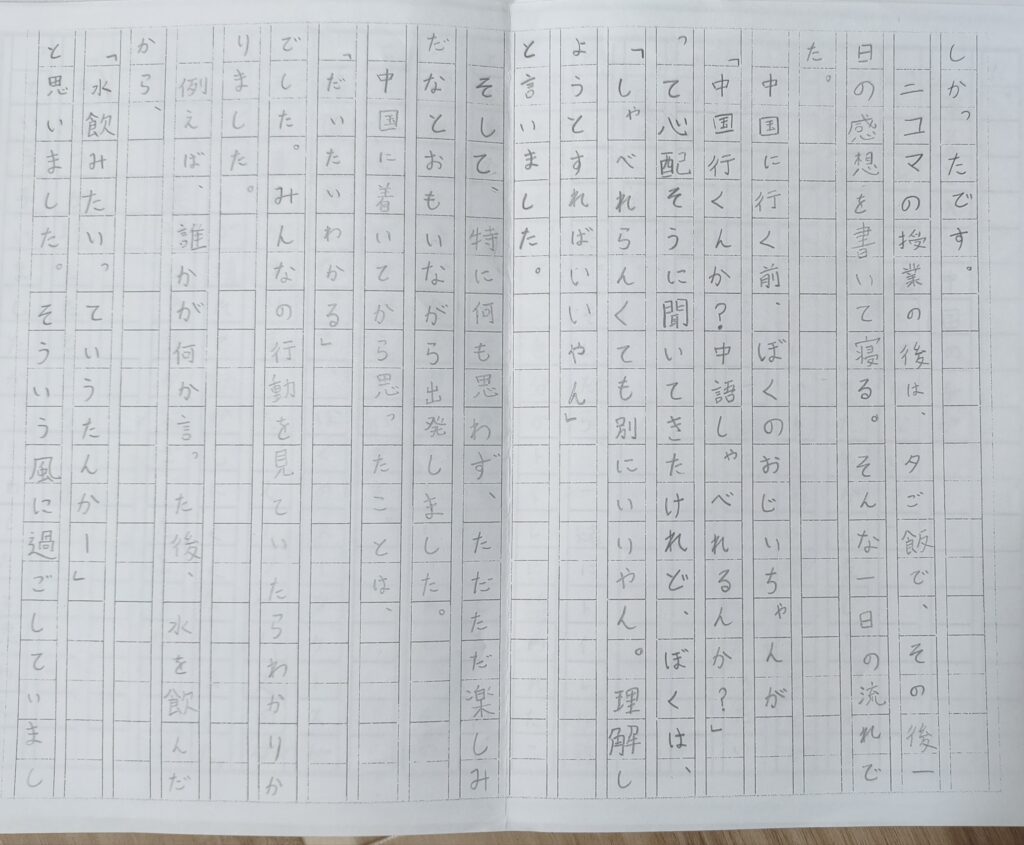 しかったです。
二コマの授業の後は、夕ご飯で、その後一
日の感想を書いて寝る。そんな一日の流れで
た。
中国に行く前、ぼくのおじいちゃんが
「中国行くんか?中語しゃべれるんか?」
って心配そうに聞いてきたけれど、ぼくは、
「しゃべれらんくても別にいいやん。理解し
ようとすればいいやん」
と言いました。
そして、特に何も思わず、ただただ楽しみ
だなとおもいながら出発しました。
中国に着いてから思ったことは、
「だいたいわかる」
でした。みんなの行動を見ていたらわかりか
りました。
例えば、誰かが何か言った後、水を飲んだ
から、
「水飲みたいっていうたんかー」
と思いました。そういう風に過ごしていまし